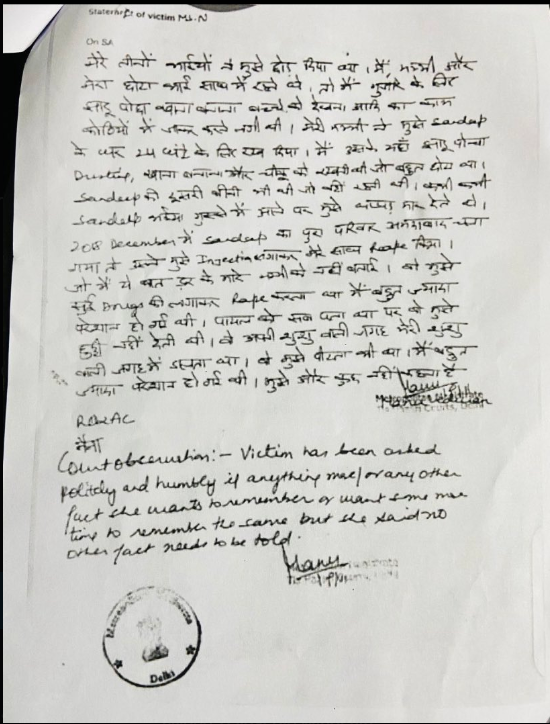 Statement of victim Ms. N
On SA
मेरे तीनों भाईयों ने मुझे छोड़ दिया था। मैं, मम्मी और
मेरा छोटा भाई साथ में रहते थे, तो मैं गुजारे के लिए
झाडू पोछा खाना बनाना बच्चे को देखना आदि का काम
कोठियों में जाकर करने लगी थी। मेरी मम्मी ने मुझे Sandeep
के घर 24 घंटे के लिए रख दिया। मैं उनके यहाँ झाडू पोन्चा
Dusting, खाना बनाना और को रखती थी जो बहुत छोटा था।
Sandeep की दूसरी बीवी भी थी जो वहीं रहती थी। कभी कभी
Sandeep भईया गुस्से में आने पर मुझे थप्पड़ मार देते थे।
2018 December में Sandeep का पूरा परिवार अहमदाबाद चला
गया तो उसने मुझे Injection लगाकर मेरे साथ Rape किया।
जो मैं ये बात डर के मारे मम्मी को नहीं बताई। वो मुझे
सुई Drugs की लगाकर Rape करता था मैं बहुत ज्यादा
परेशान हो गई थी। पायल को सब पता था पर वो मुझे
छुट्टी नहीं देती थी। वो अपनी शुशु वाली जगह मेरी शुशु
वाली जगह में डालता था। वो मुझे पीटता भी था। मैं बहुत
ज्यादा परेशान हो गई थी। मुझे और कुछ नहीं कहना है
RO&AC
नैना
Court observation:- Victim has been asked
politely and humbly if anything more/or any other
fact she wants to remember or want some more
time to remember the same but she said no
other fact needs to be told.
Delhi